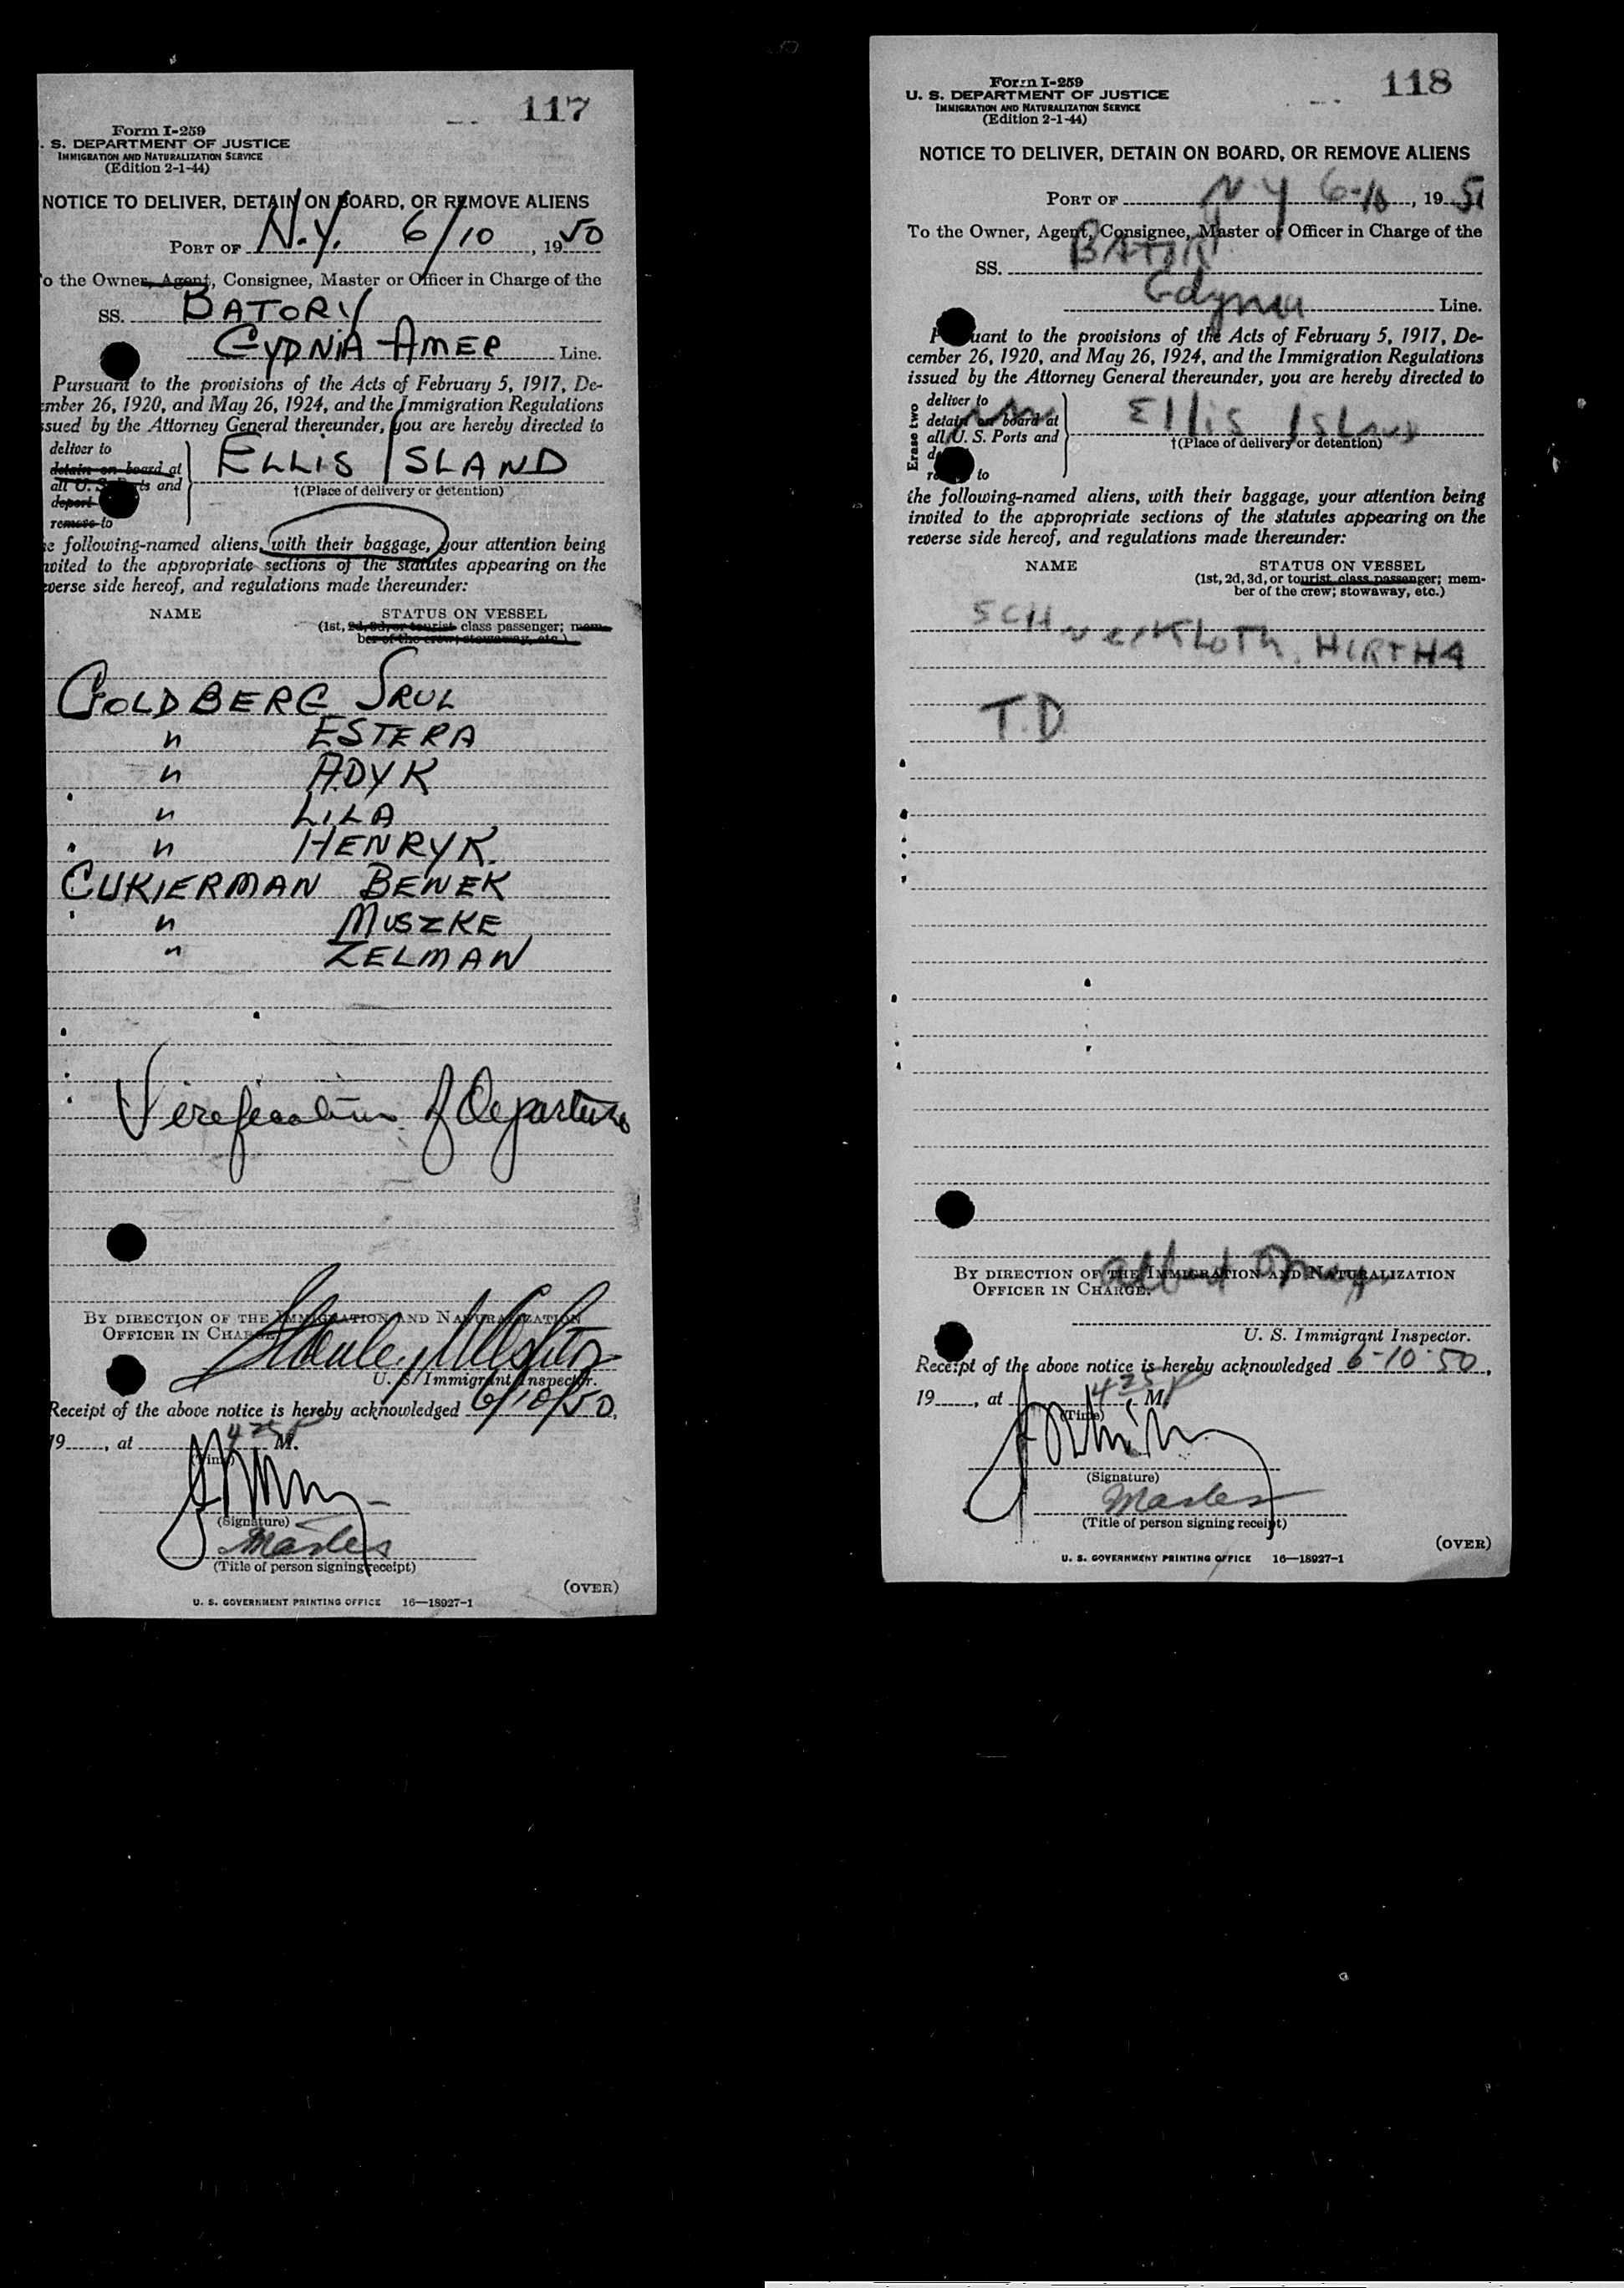 117
Form I-259
. S. DEPARTMENT OF JUSTICE
IMMIGRATION AND NATURALIZATION SERVICE
(Edition 2-1-44)
NOTICE TO DELIVER, DETAIN ON BOARD, OR REMOVE ALIENS
PORT OF N.Y. 6/10, 1950
o the Owner, Agent, Consignee, Master or Officer in Charge of the
SS. BATORY
GYDNIA-AMER Line.
Pursuant to the provisions of the Acts of February 5, 1917, De-
mber 26, 1920, and May 26, 1924, and the Immigration Regulations
ssued by the Attorney General thereunder, you are hereby directed to
deliver to
detain on board at
all U. S. Ports and
deport
remove to
ELLIS ISLAND
†(Place of delivery or detention)
e following-named aliens, with their baggage, your attention being
nvited to the appropriate sections of the statutes appearing on the
everse side hereof, and regulations made thereunder:
NAME STATUS ON VESSEL
(1st, 2d, 3d, or tourist class passenger; mem-
ber of the crew; stowaway, etc.)
GOLDBERG SRUL
" ESTERA
" ADYK
" LILA
" HENRYK.
CUKIERMAN BENEK
" MUSZKE
" ZELMAN
Verefication of Departure
BY DIRECTION OF THE IMMIGRATION AND NATURALIZATION
OFFICER IN CHARGE
U. S. Immigrant Inspector.
Receipt of the above notice is hereby acknowledged 6/10/50,
19, at 425 P M.
(Time)
(Signature)
Master
(Title of person signing receipt)
(OVER)
U. S. GOVERNMENT PRINTING OFFICE 16—18927-1
118
Form I-259
U. S. DEPARTMENT OF JUSTICE
IMMIGRATION AND NATURALIZATION SERVICE
(Edition 2-1-44)
NOTICE TO DELIVER, DETAIN ON BOARD, OR REMOVE ALIENS
PORT OF N.Y 6-10, 19
To the Owner, Agent, Consignee, Master or Officer in Charge of the
SS. BATORY
Gdynia Line.
Pursuant to the provisions of the Acts of February 5, 1917, De-
cember 26, 1920, and May 26, 1924, and the Immigration Regulations
issued by the Attorney General thereunder, you are hereby directed to
Erase two
deliver to
detain on board at
all U. S. Ports and
to
Ellis Island
†(Place of delivery or detention)
the following-named aliens, with their baggage, your attention being
invited to the appropriate sections of the statutes appearing on the
reverse side hereof, and regulations made thereunder:
NAME STATUS ON VESSEL
(1st, 2d, 3d, or tourist class passenger; mem-
ber of the crew; stowaway, etc.)
HIRTHA
T.D
BY DIRECTION OF THE IMMIGRATION AND NATURALIZATION
OFFICER IN CHARGE.
U. S. Immigrant Inspector.
Receipt of the above notice is hereby acknowledged 6-10-50,
19, at 425 P M.
(Time)
(Signature)
Master
(Title of person signing receipt)
(OVER)
U. S. GOVERNMENT PRINTING OFFICE 16—18927-1